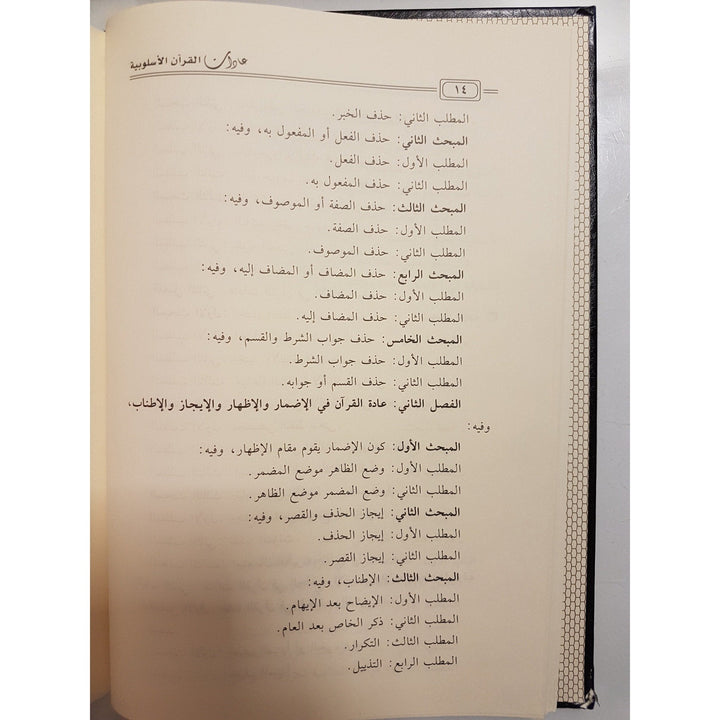 عادات القرآن الأسلوبية
١٤
المطلب الثاني: حذف الخبر.
المبحث الثاني: حذف الفعل أو المفعول به، وفيه:
المطلب الأول: حذف الفعل.
المطلب الثاني: حذف المفعول به.
المبحث الثالث: حذف الصفة أو الموصوف، وفيه:
المطلب الأول: حذف الصفة.
المطلب الثاني: حذف الموصوف.
المبحث الرابع: حذف المضاف أو المضاف إليه، وفيه:
المطلب الأول: حذف المضاف.
المطلب الثاني: حذف المضاف إليه.
المبحث الخامس: حذف جواب الشرط والقسم، وفيه:
المطلب الأول: حذف جواب الشرط.
المطلب الثاني: حذف القسم أو جوابه.
الفصل الثاني: عادة القرآن في الإضمار والإظهار والإيجاز والإطناب،
وفيه:
المبحث الأول: كون الإضمار يقوم مقام الإظهار، وفيه:
المطلب الأول: وضع الظاهر موضع المضمر.
المطلب الثاني: وضع المضمر موضع الظاهر.
المبحث الثاني: إيجاز الحذف والقصر، وفيه:
المطلب الأول: إيجاز الحذف.
المطلب الثاني: إيجاز القصر.
المبحث الثالث: الإطناب، وفيه:
المطلب الأول: الإيضاح بعد الإيهام.
المطلب الثاني: ذكر الخاص بعد العام.
المطلب الثالث: التكرار.
المطلب الرابع: التذييل.